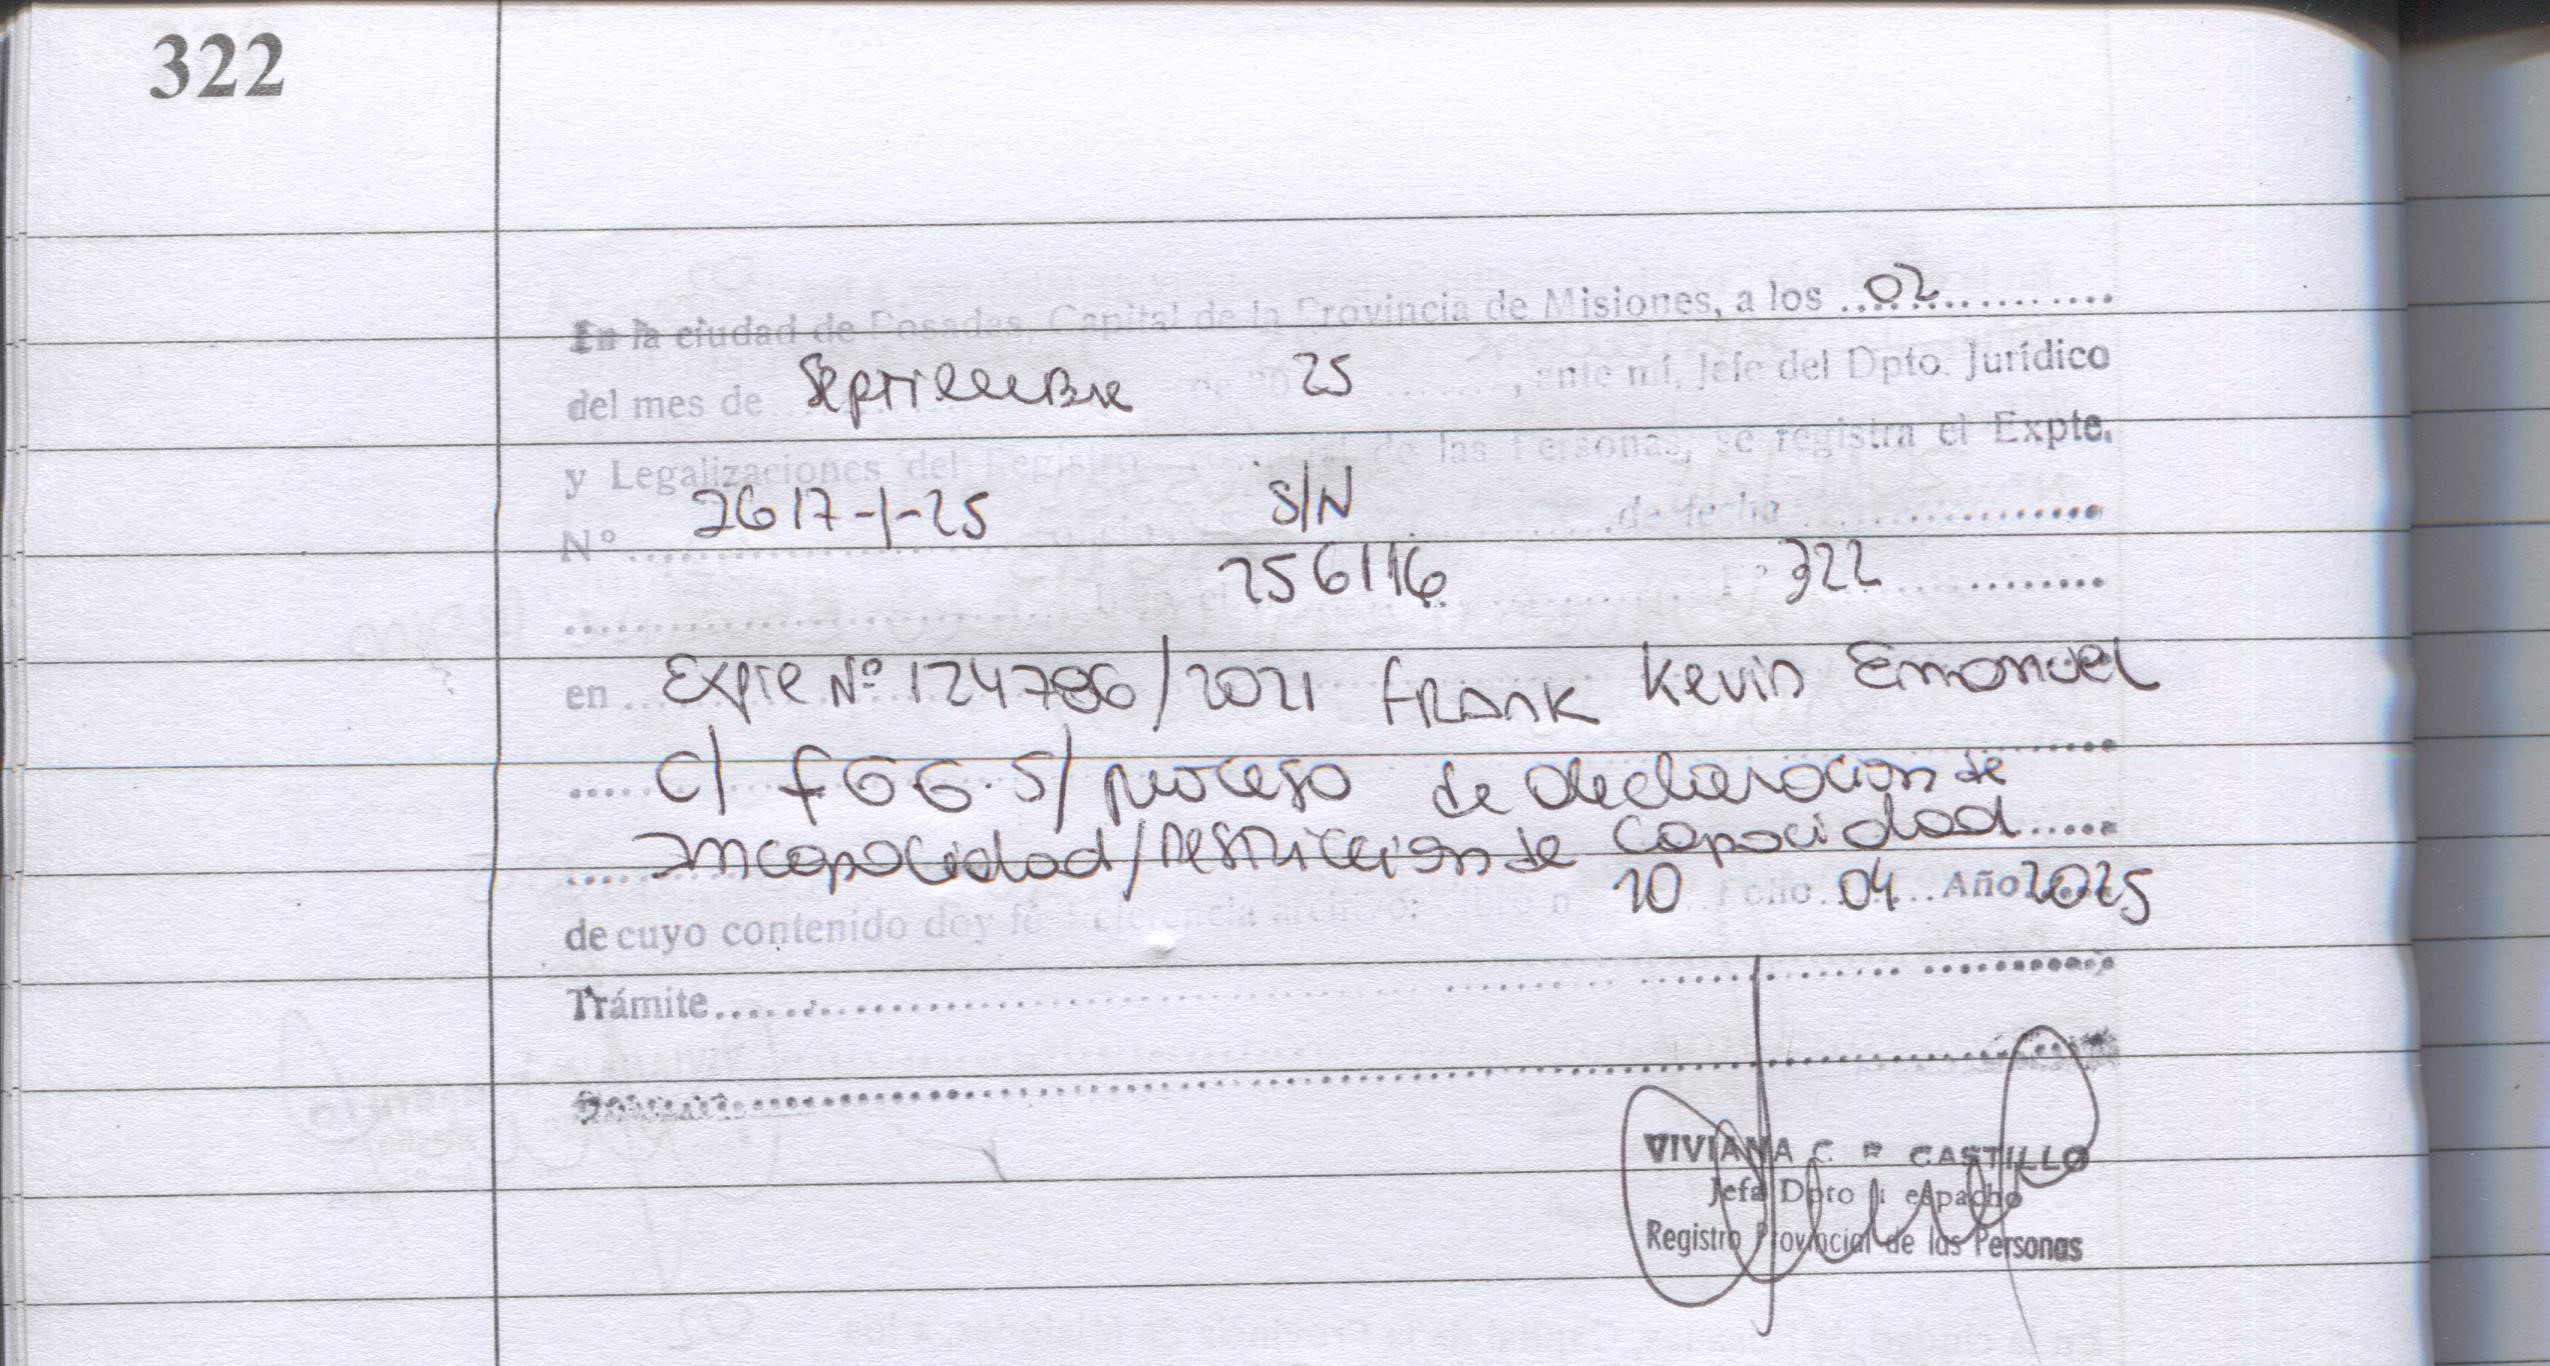 322
En la ciudad de Posadas, Capital de la Provincia de Misiones, a los 02
del mes de Septiembre de 20 25, ante mí, Jefe del Dpto. Jurídico
y Legalizaciones del Registro Provincial de las Personas, se registra el Expte.
Nº 2617-1-25 S/N de fecha
256116 Fº 322
en Expte Nº 124786/2021 FRANK Kevin Emanuel
C/ F G G. S/ proceso de declaracion de
Incapacidad/restriccion de Capacidad
de cuyo contenido doy fé 10 Folio 04 Año 2025
Trámite
VIVIANA C. CASTILLO
Jefa Dpto Despacho
Registro Provincial de las Personas